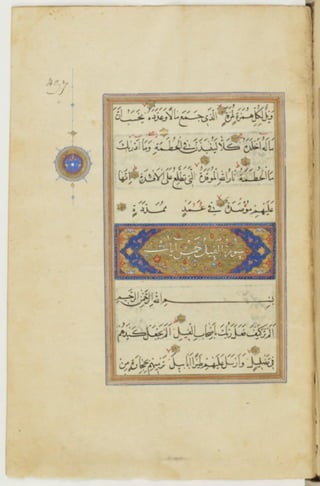 ويل لكل همزة لمزة الذي جمع مالا وعدده يحسب ان
ماله اخلده كلا لينبذن في الحطمة وما ادريك
ما الحطمة نار الله الموقدة التي تطلع على الافئدة انها
عليهم موصدة في عمد ممددة
سورة الفيل خمس آيات
بسم الله الرحمن الرحيم
الم تر كيف فعل ربك باصحاب الفيل الم يجعل كيدهم
في تضليل وارسل عليهم طيرا ابابيل ترميهم بحجارة من